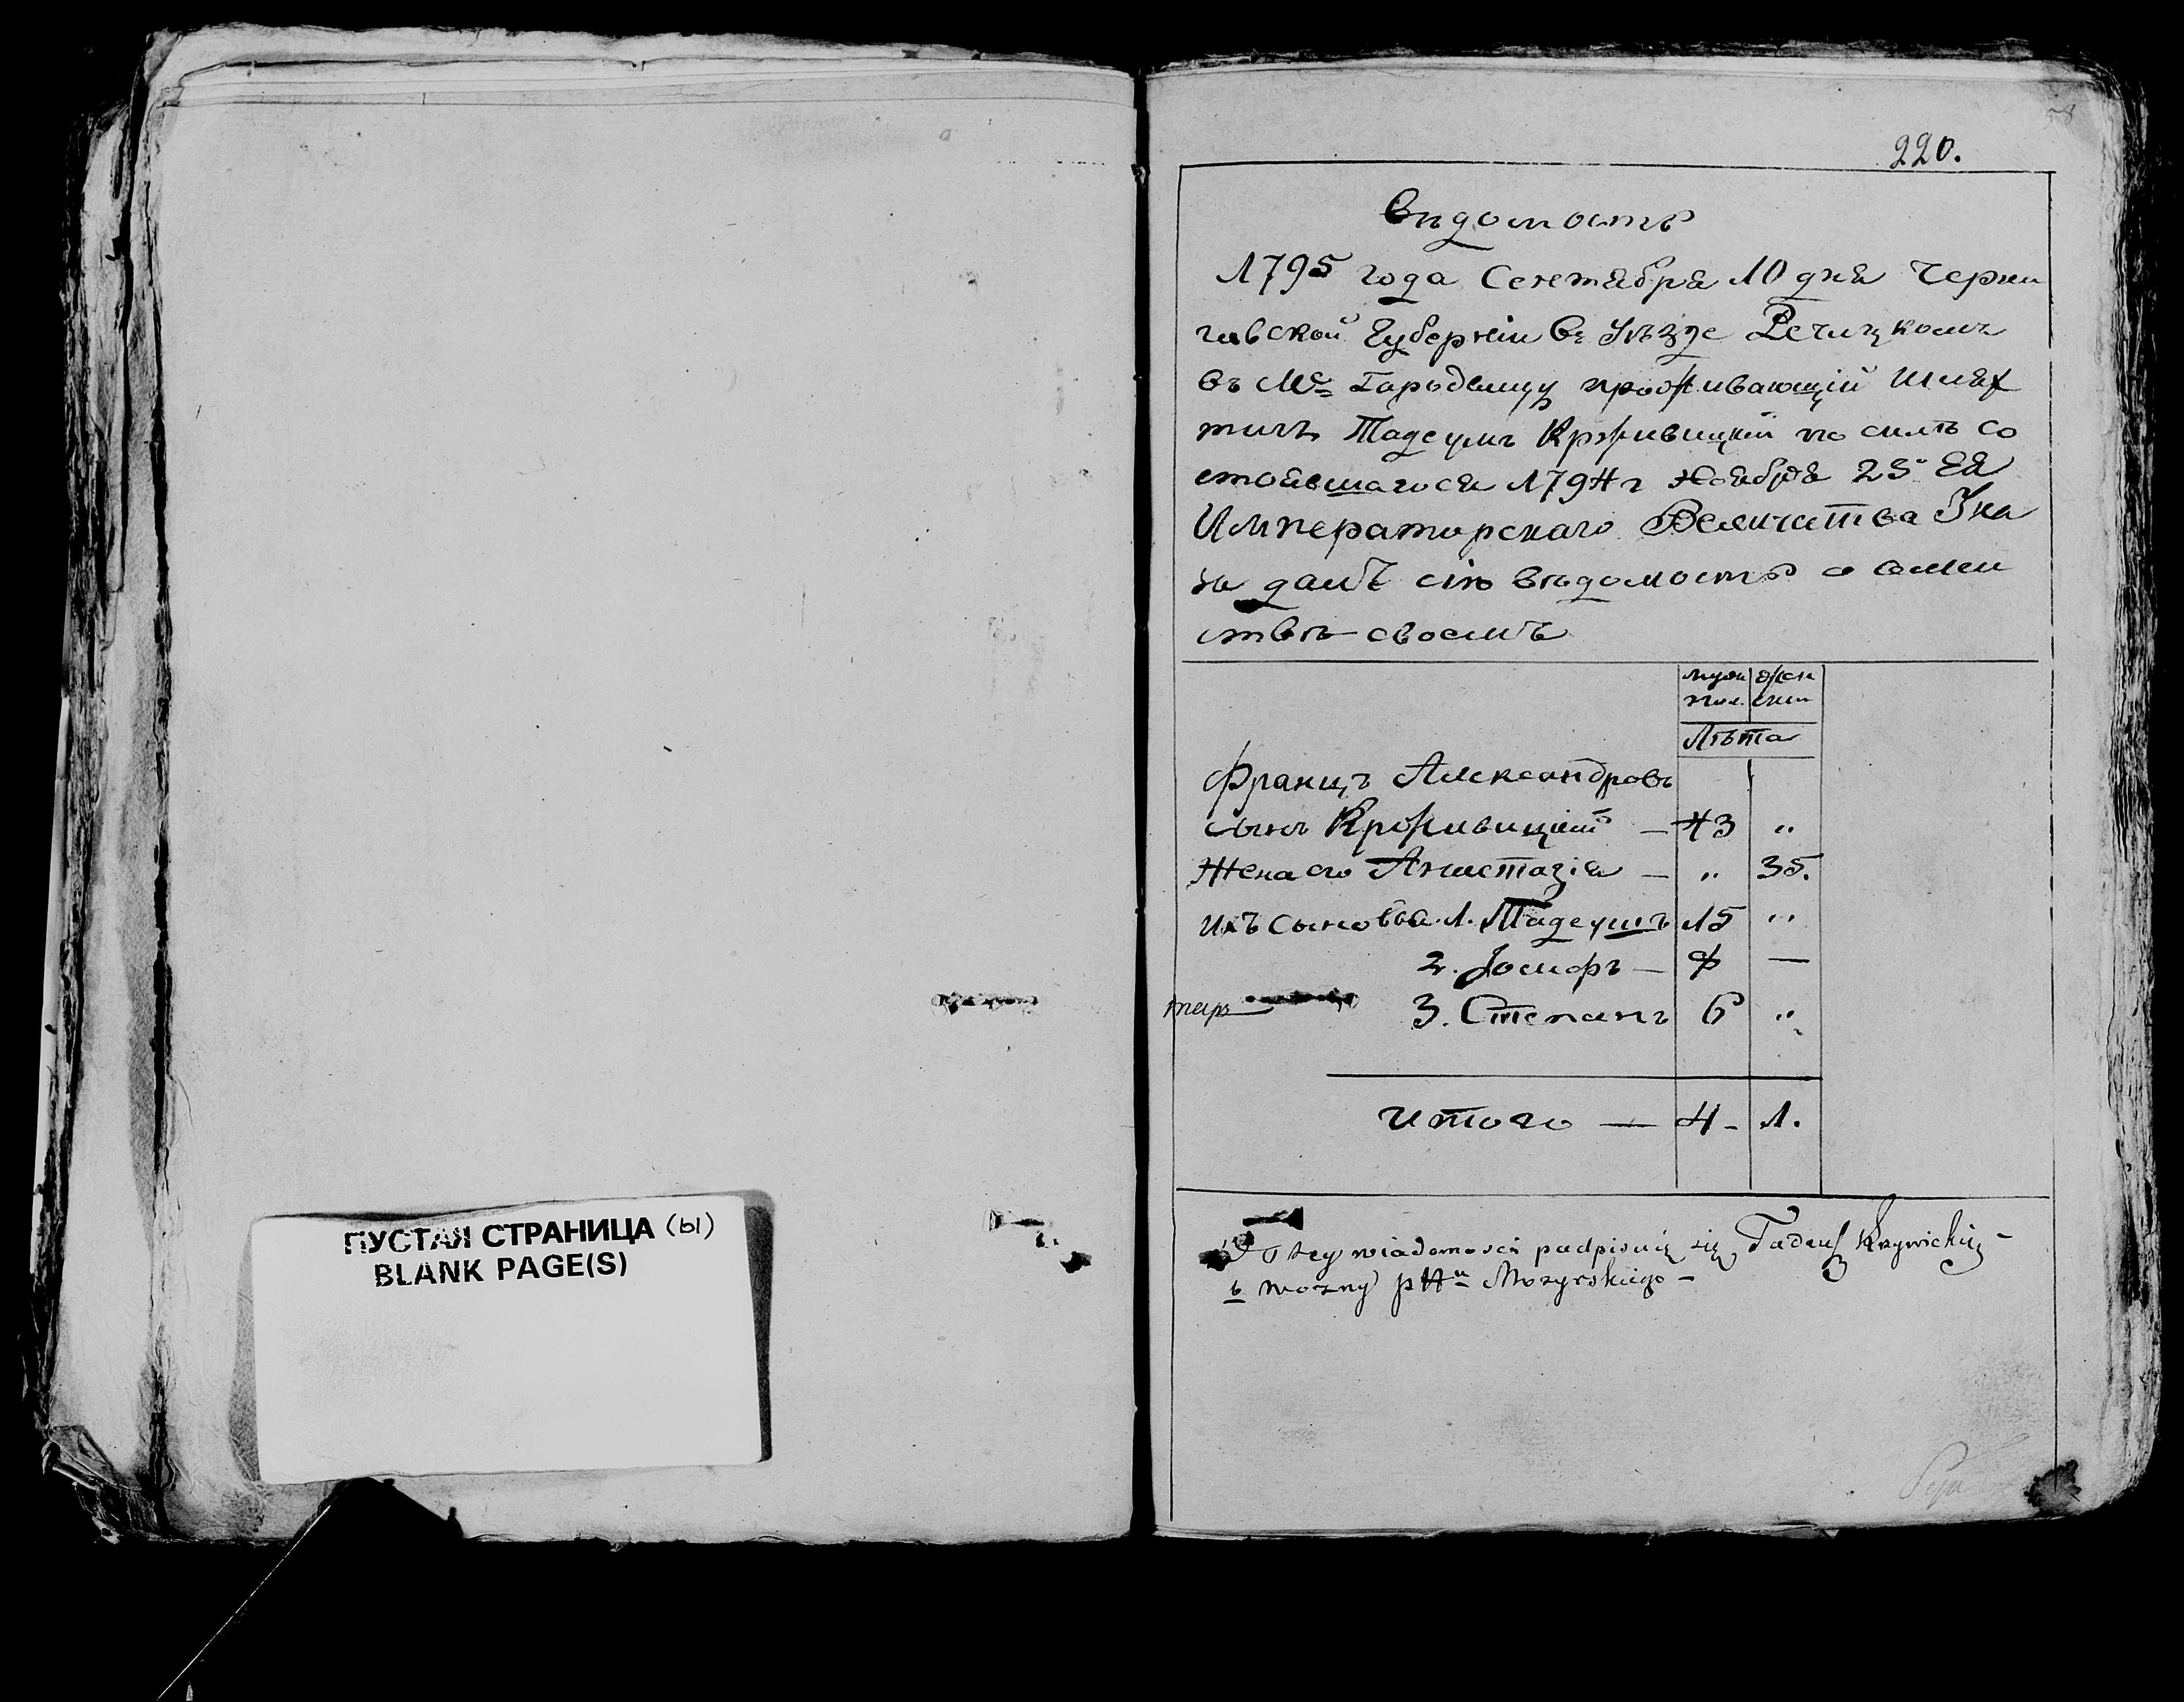 58
220.
Вѣдомость
1795 года Сентября 10 дня Черни
говской Губерніи въ Уѣзде Речицкомъ
въ Мс Городищу проживающій шлях
тичъ Тадеушъ Крживицкій по силѣ со
стоявшагося 1794 г Ноября 25 Ея
Императорскаго Величества Ука
за далъ сію вѣдомость о семей
ствѣ своемъ
муж жен
пол. скій
Лѣта
Францъ Александровъ
сынъ Крживицкій — 43 „
Жена его Анастазія — „ 35.
ихъ сыновья 1. Тадеушъ 15 „
2. Іосифъ — —
3. Степанъ 6 „
Итого — 4 - 1.
Do tey wiadomości podpisuię się Tadeusz Krzywickij
b wozny pttu Mozyrskiego —
ПУСТАЯ СТРАНИЦА (ы)
BLANK PAGE(S)